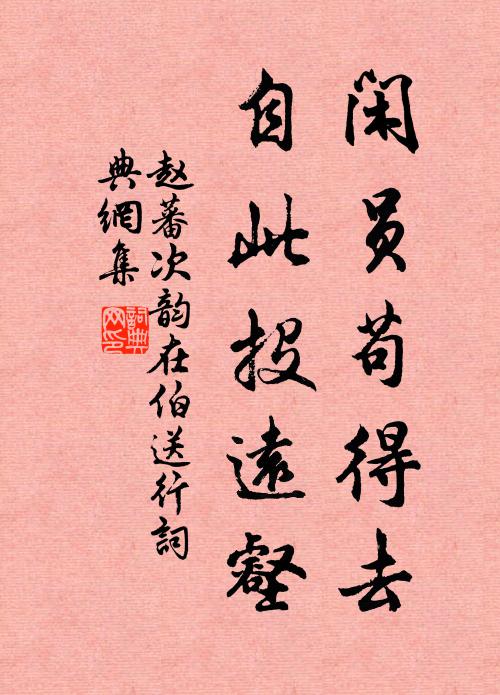 闲员苟得去
自此投遠壑
赵蕃次韵在伯送行詞
典網集
詞典网印